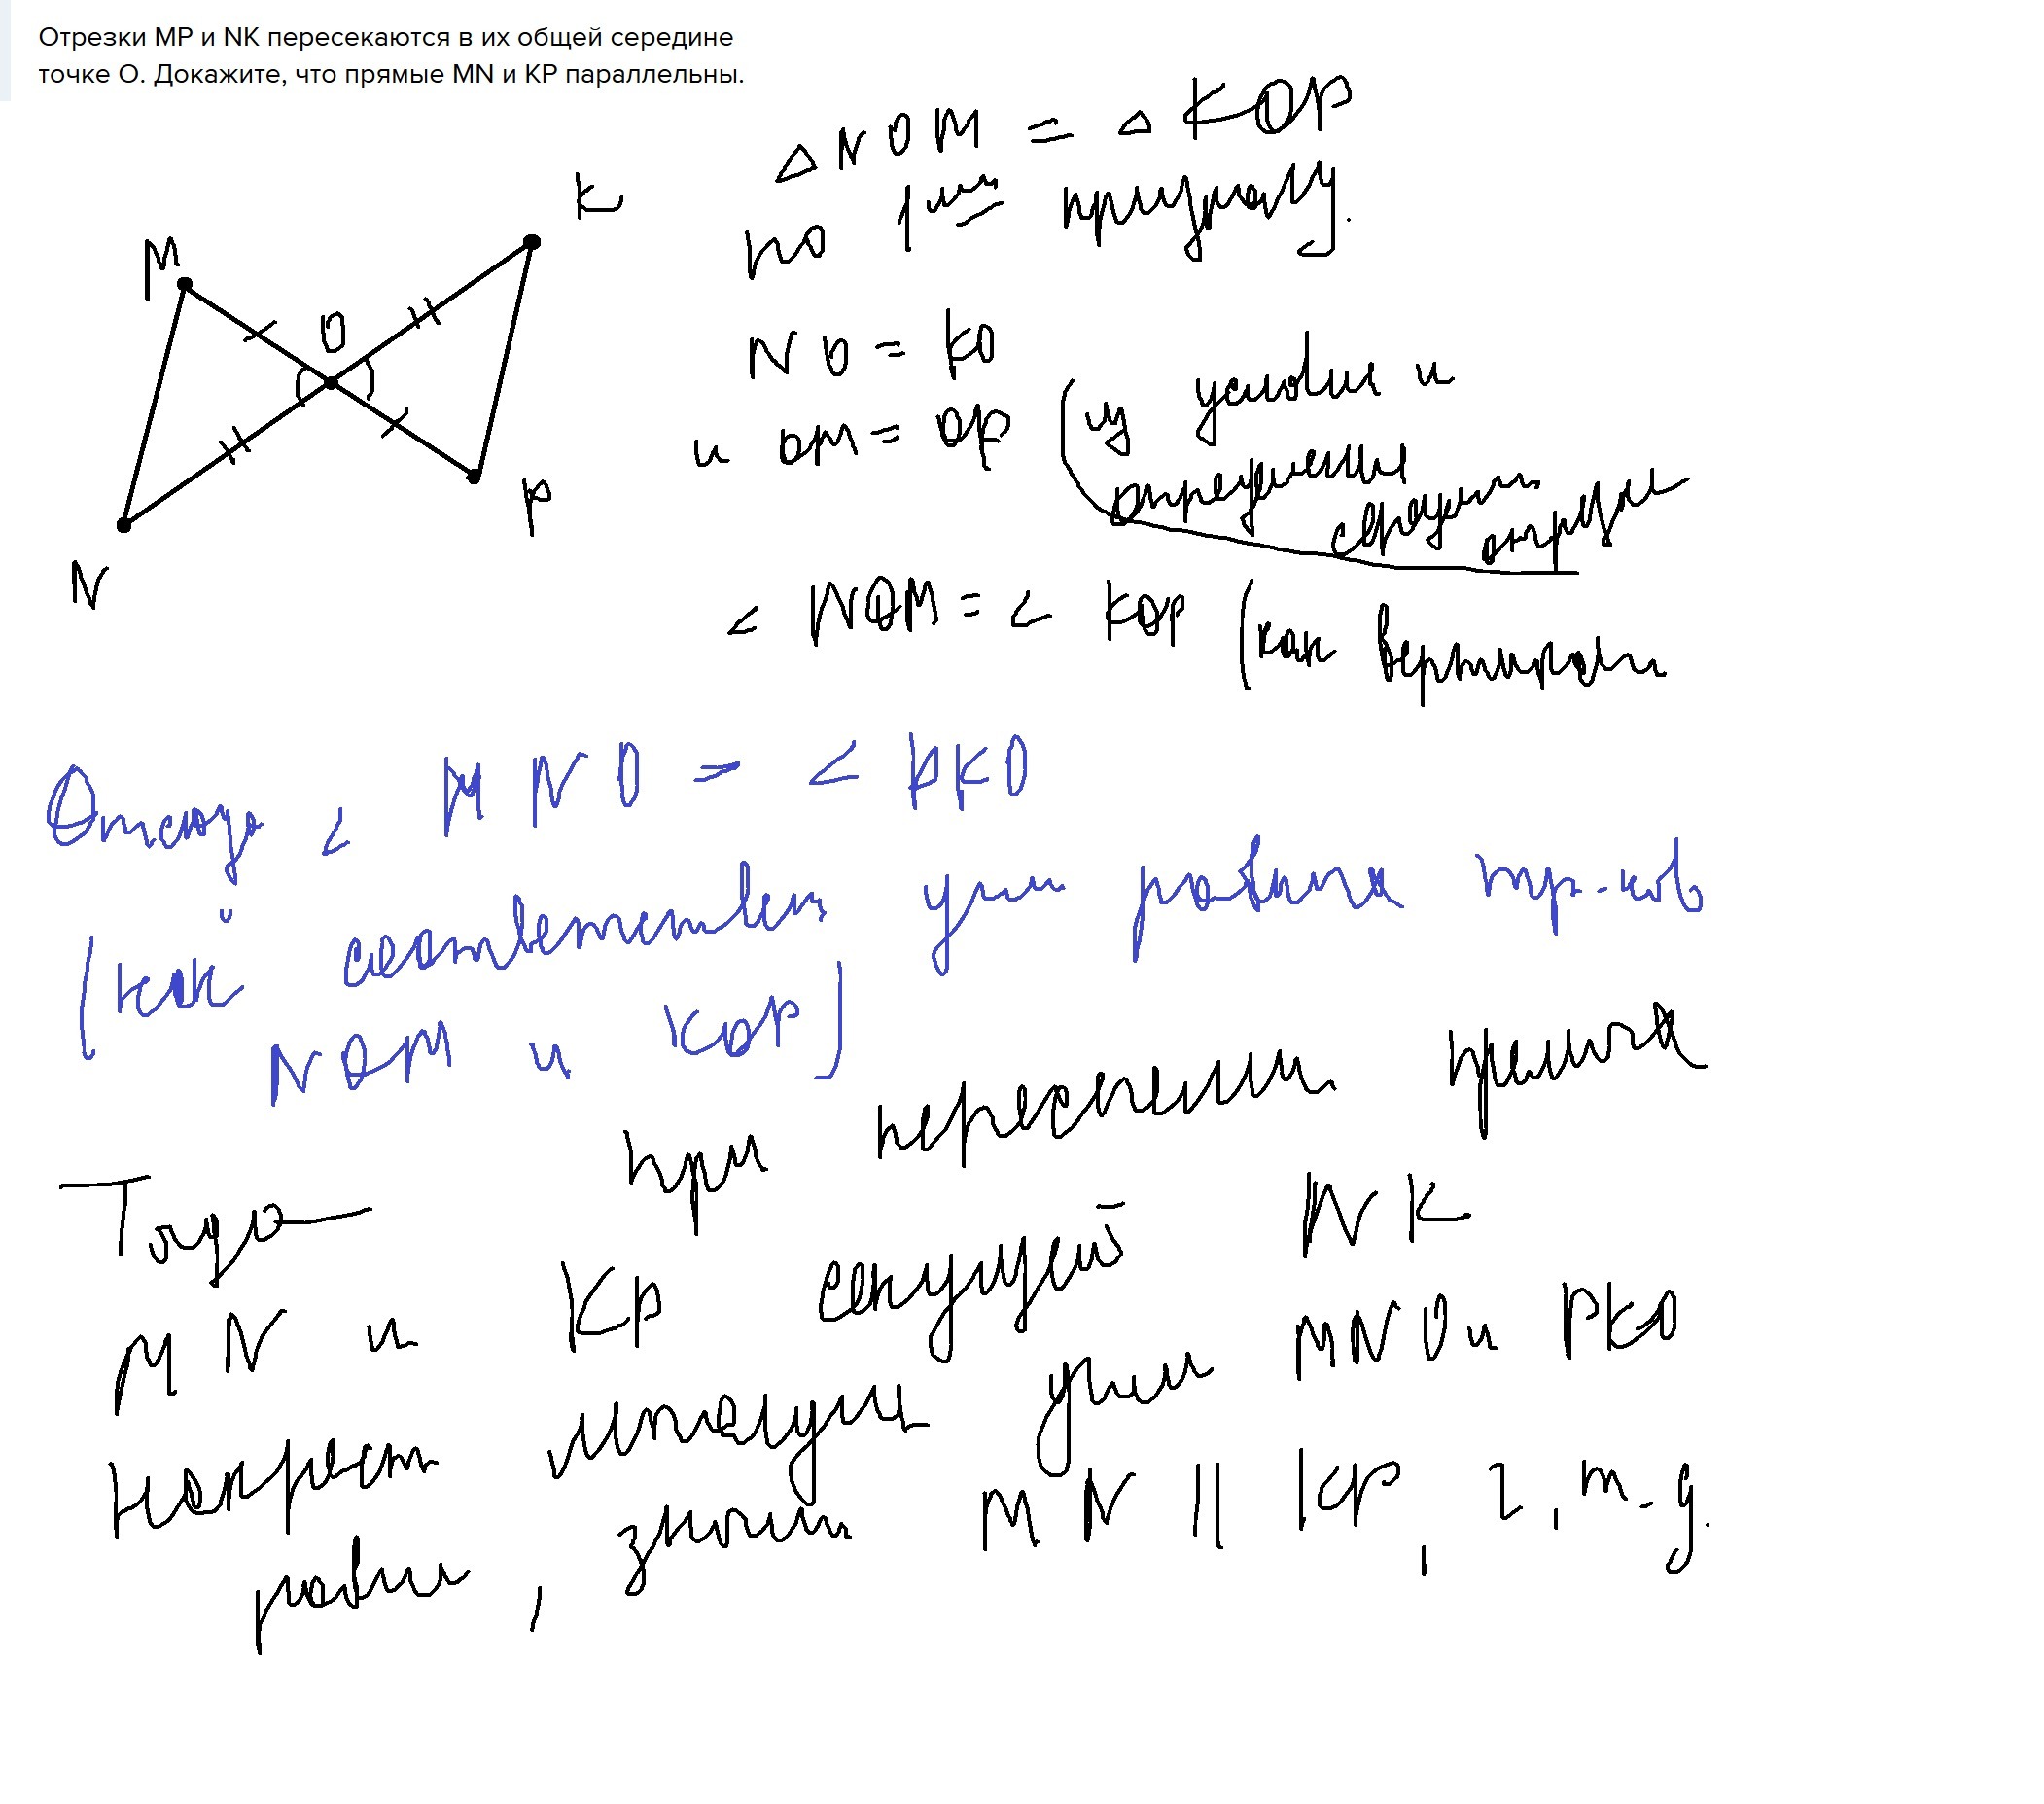 Отрезки MP и NK пересекаются в их общей середине
точке O. Докажите, что прямые MN и KP параллельны.
△ NOM = △ KOP
по 1му признаку.
K
M
O
P
N
NO = KO
и OM = OP (из условия и
определения
середины отрезка
∠ NOM = ∠ KOP (как вертикальн
Отсюда ∠ MNO = ∠ PKO
(как соответствен углы равных тр-ков
NOM и KOP)
Тогда при пересечении прямых
MN и KP секущей NK
накрест лежащие углы MNO и PKO
равны, значит MN || KP, ч.т.д.